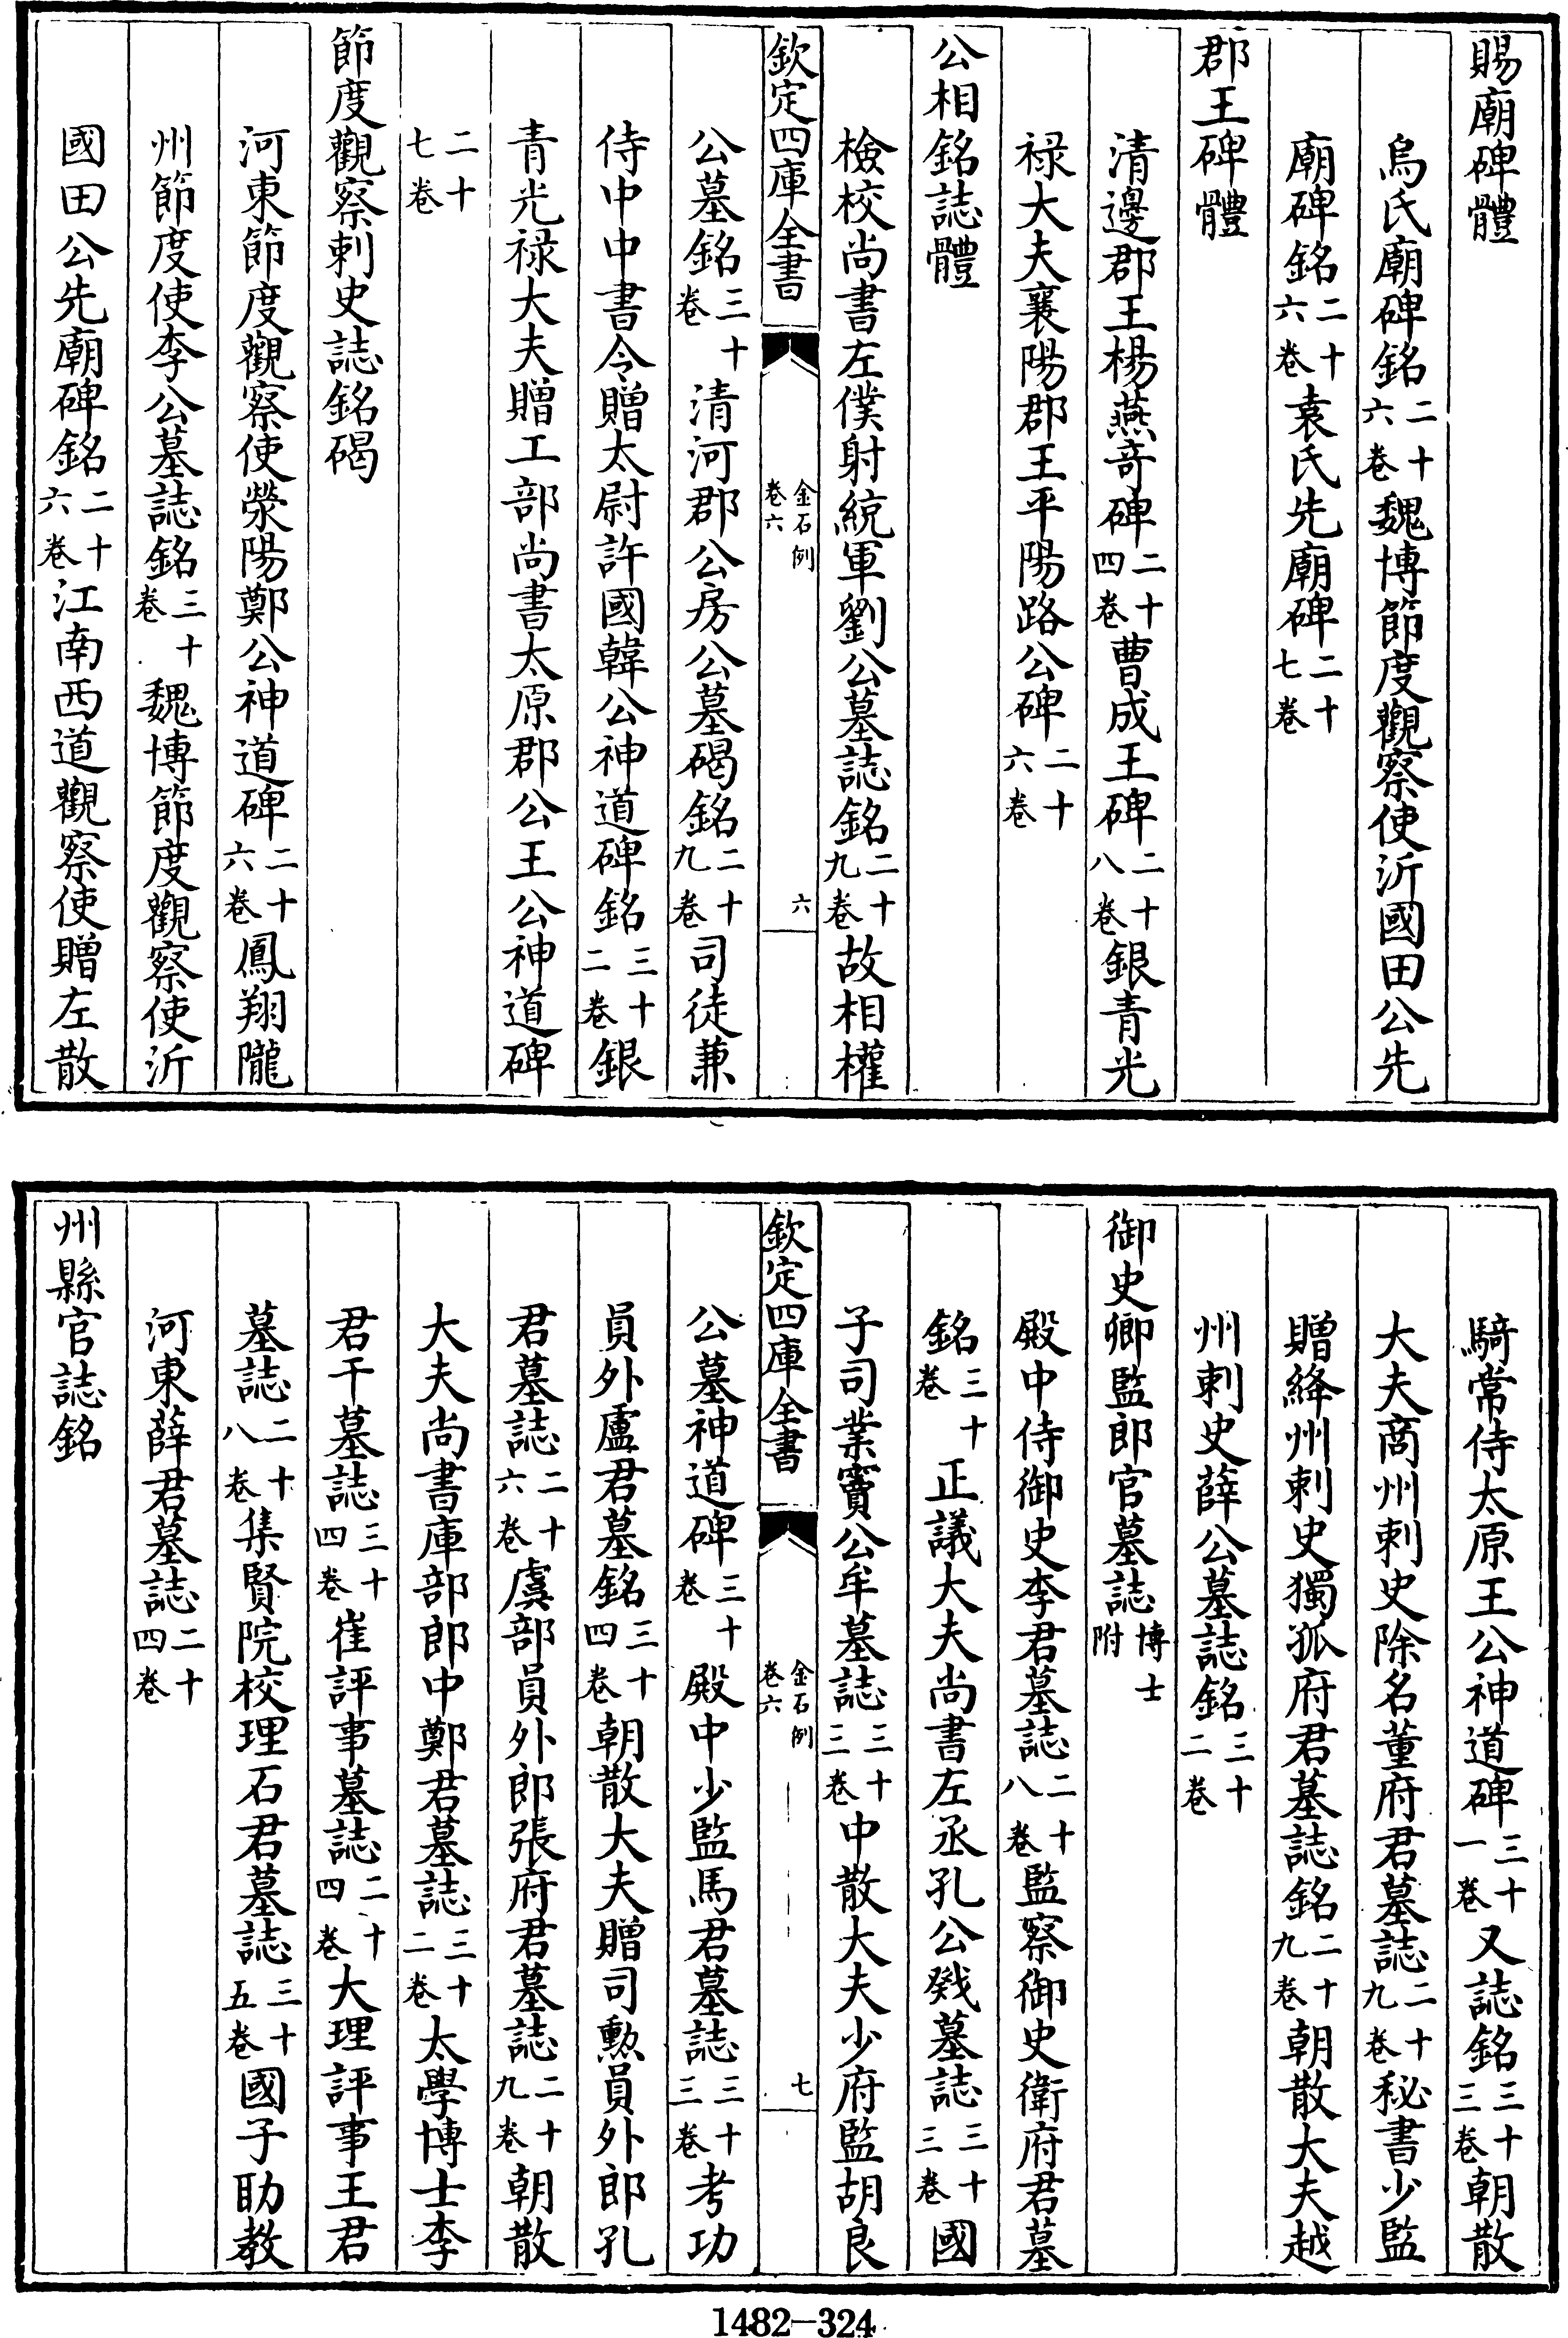 賜廟碑體
烏氏廟碑銘二十六卷魏博節度觀察使沂國田公先
廟碑銘二十六卷袁氏先廟碑二十七卷
郡王碑體
清邊郡王楊燕竒碑二十四卷曹成王碑二十八卷銀青光
禄大夫襄陽郡王平陽路公碑二十六卷
公相銘誌體
檢校尚書左僕射統軍劉公墓誌銘二十九卷故相權
欽定四庫全書 金石例 卷六 六
公墓銘三十卷清河郡公房公墓碣銘二十九卷司徒兼
侍中中書令贈太尉許國韓公神道碑銘三十二卷銀
青光禄大夫贈工部尚書太原郡公王公神道碑
二十七卷
節度觀察刺史誌銘碣
河東節度觀察使滎陽鄭公神道碑二十六卷鳳翔隴
州節度使李公墓誌銘三十卷魏博節度觀察使沂
國田公先廟碑銘二十六卷江南西道觀察使贈左散
騎常侍太原王公神道碑三十一卷又誌銘三十三卷朝散
大夫商州刺史除名董府君墓誌二十九卷秘書少監
贈絳州刺史獨孤府君墓誌銘二十九卷朝散大夫越
州刺史薛公墓誌銘三十二卷
御史卿監郎官墓誌博士附
殿中侍御史李君墓誌二十八卷監察御史衛府君墓
銘三十卷正議大夫尚書左丞孔公戣墓誌三十三卷國
子司業竇公牟墓誌三十三卷中散大夫少府監胡良
欽定四庫全書 金石例 卷六 七
公墓神道碑三十卷殿中少監馬君墓誌三十三卷考功
員外盧君墓銘三十四卷朝散大夫贈司勲員外郎孔
君墓誌二十六卷虞部員外郎張府君墓誌二十九卷朝散
大夫尚書庫部郎中鄭君墓誌三十二卷太學博士李
君干墓誌三十四卷崔評事墓誌二十四卷大理評事王君
墓誌二十八卷集賢院校理石君墓誌三十五卷國子助教
河東薛君墓誌二十四卷
州縣官誌銘
1482-324